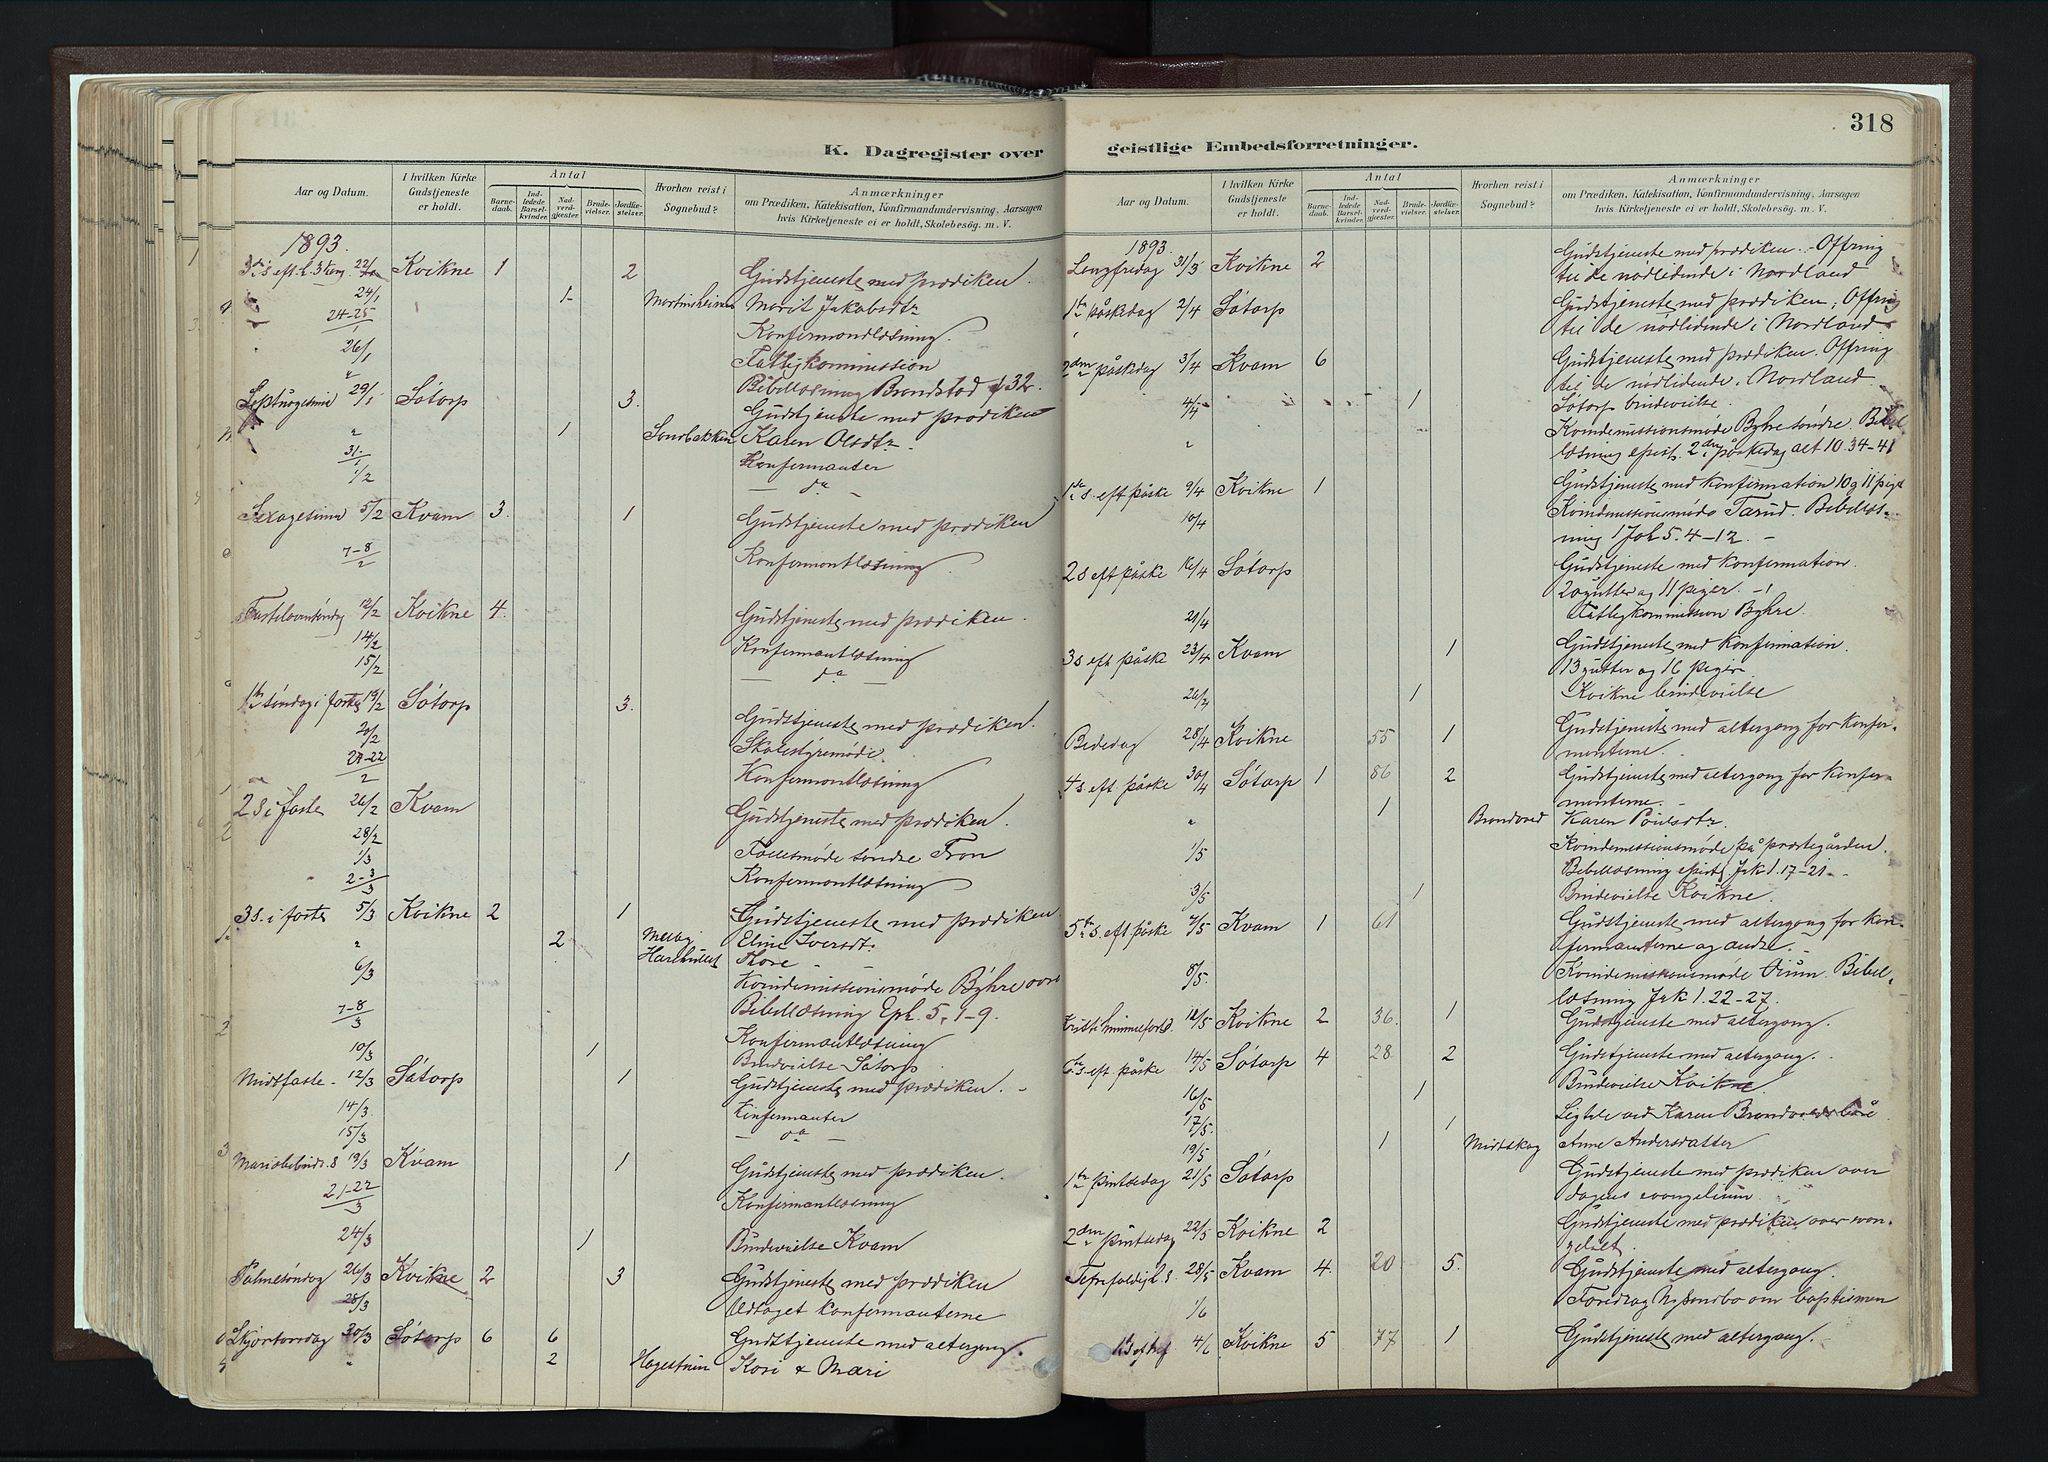 318
K. Dagregister over
geistlige Embedsforretninger.
Aar og Datum.
I hvilken Kirke Gudstjeneste er holdt.
Antal
Barne-daab.
Ind-ledede Barsel-kvinder.
Nad-verd-gjester.
Brude-vielser.
Jordfæ-stelser.
Hvorhen reist i Sognebud?
Anmærkninger
om Prædiken, Katekisation, Konfirmandundervisning, Aarsagen
hvis Kirketjeneste ei er holdt, Skolebesøg. m. V.
1893.
Kvikne 1 2 Gudstjeneste med prædiken.
24/1 1 Marit Jakobsdtr
24-25/1 Konfermantlæsning.
26/1 Fattigkommission
Septuagesima 29/1 Søtorp 3. Gudstjeneste med prædiken
" 1 Karen Olsdtr
31/1 Konfermanter
1/2 — da —
Sexagesima 5/2 Kvam 3. 1 Gudstjeneste med prædiken
7-8/2 Konfermantlæsning
12/2 Kvikne 4. Gudstjeneste med prædiken.
14/2 Konfermantlæsning
15/2 — da —
1ste søndag i faste 19/2 Søtorp 3. Gudstjeneste med prædiken.
20/2 Skolestyremøde.
21-22/2 Konfermantlæsning
2 S i faste 26/2 Kvam Gudstjeneste med prædiken.
28/2 Fællesmøde søndre Fron
1/3
2-3/3 Konfermantlæsning
3 S. i faste 5/3 Kvikne 2 1 Gudstjeneste med prædiken
" 2 Melby Eline Iversdt.
6/3 Kvindemissionsmøde Byhre
Bibellæsning Eph. 5, 1-9.
7-8/3 Konfermantlæsning
10/3 1 Brudevielse Søtorp
Midtfaste 12/3 Søtorp 1 Gudstjeneste med prædiken.
14/3 Konfermanter
15/3 — da —
19/3 Kvam 1 Gudstjeneste med prædiken.
21-22/3 Konfermantlæsning
24/3 1 Brudevielse Kvam
Palmesøndag 26/3 Kvikne 2 3 Gudstjeneste med prædiken
28/3 Udtaget konfermanterne
Skjærtorsdag 30/3 Søtorp 6 6 Gudstjeneste med altergang.
" 2 Kari & Mari
Aar og Datum.
I hvilken Kirke Gudstjeneste er holdt.
Antal
Barne-daab.
Ind-ledede Barsel-kvinder.
Nad-verd-gjester.
Brude-vielser.
Jordfæ-stelser.
Hvorhen reist i Sognebud?
Anmærkninger
om Prædiken, Katekisation, Konfirmandundervisning, Aarsagen
hvis Kirketjeneste ei er holdt, Skolebesög. m. V.
1893.
Langfredag 31/3 Kvikne 2 Gudstjeneste med prædiken. Offring
til de nødlidende i Nordland
1ste påskedag 2/4 Søtorp Gudstjeneste med prædiken, Offring
til de nødlidende i Nordland.
2den påskedag 3/4 Kvam 6 Gudstjeneste med prædiken. Offring
til de nødlidende i Nordland
4/4 1 Søtorp brudevielse.
" Kvindemissionsmøde Byhre søndre. Bibel
læsning epist. 2den påskedag act 10. 34-41
1ste s. eft påske 9/4 Kvikne 1 Gudstjeneste med konfirmation
10/4 Kvindemissionsmøde
1 Joh 5. 4-12.
2 s eft påske 16/4 Søtorp Gudstjeneste med konfermation.
og 11 piger.
21/4 Fattigkommission Byhre.
3 s eft påske 23/4 Kvam 1 Gudstjeneste med konfermation.
13 gutter og 16 piger
1 Kvikne brudevielse
Bededag 28/4 Kvikne 55 1 Gudstjeneste med altergang for konfer-
manterne.
4 s. eft påske 30/4 Søtorp 1 86 2 Gudstjeneste med altergang for konfer-
manterne.
" 1 Karen Poulsdtr.
1/5 Kvindemissionsmøde på prestegården.
Bibellæsning epist Jak 1. 17-21
3/5 1 Brudevielse Kvikne.
5te s. eft påske 7/5 Kvam 1 61 Gudstjeneste med altergang for kon-
fermanterne og andre.
8/5. Kvindemissionsmøde Bibel
læsning Jak 1. 22-27.
12/5 Kvikne 2 36. 1 Gudstjeneste med altergang.
6te s. eft påske 14/5 Søtorp 4 28 2 Gudstjeneste med altergang.
16/5 1 Brudevielse Kvikne
17/5. 1
19/5 1 Midtskog Anne Andersdatter
1ste pintsedag 21/5 Søtorp Gudstjeneste med prædiken over
dagens evangelium.
2den pintsedag 22/5 Kvikne 2 Gudstjeneste med prædiken over evan-
geliet.
28/5 Kvam 4 20 5. Gudstjeneste med altergang.
1/6 Foredrag om baptismen
4/6 Kvikne 5 77 1 Gudstjeneste med altergang.